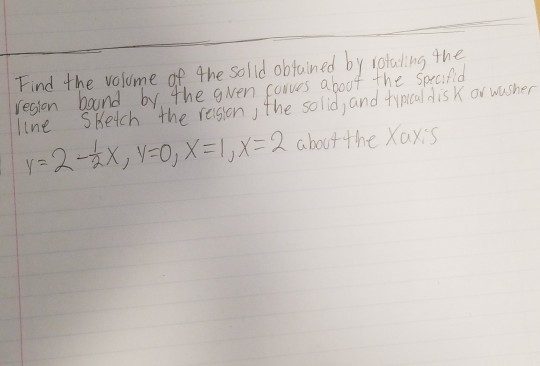 Find the volume of the solid obtained by rotating the
region bound by the given corves about the specifid
line Sketch the reigion, the solid, and typical disk or wusher
y=2-½x, y=0, x=1, x=2 about the Xaxis